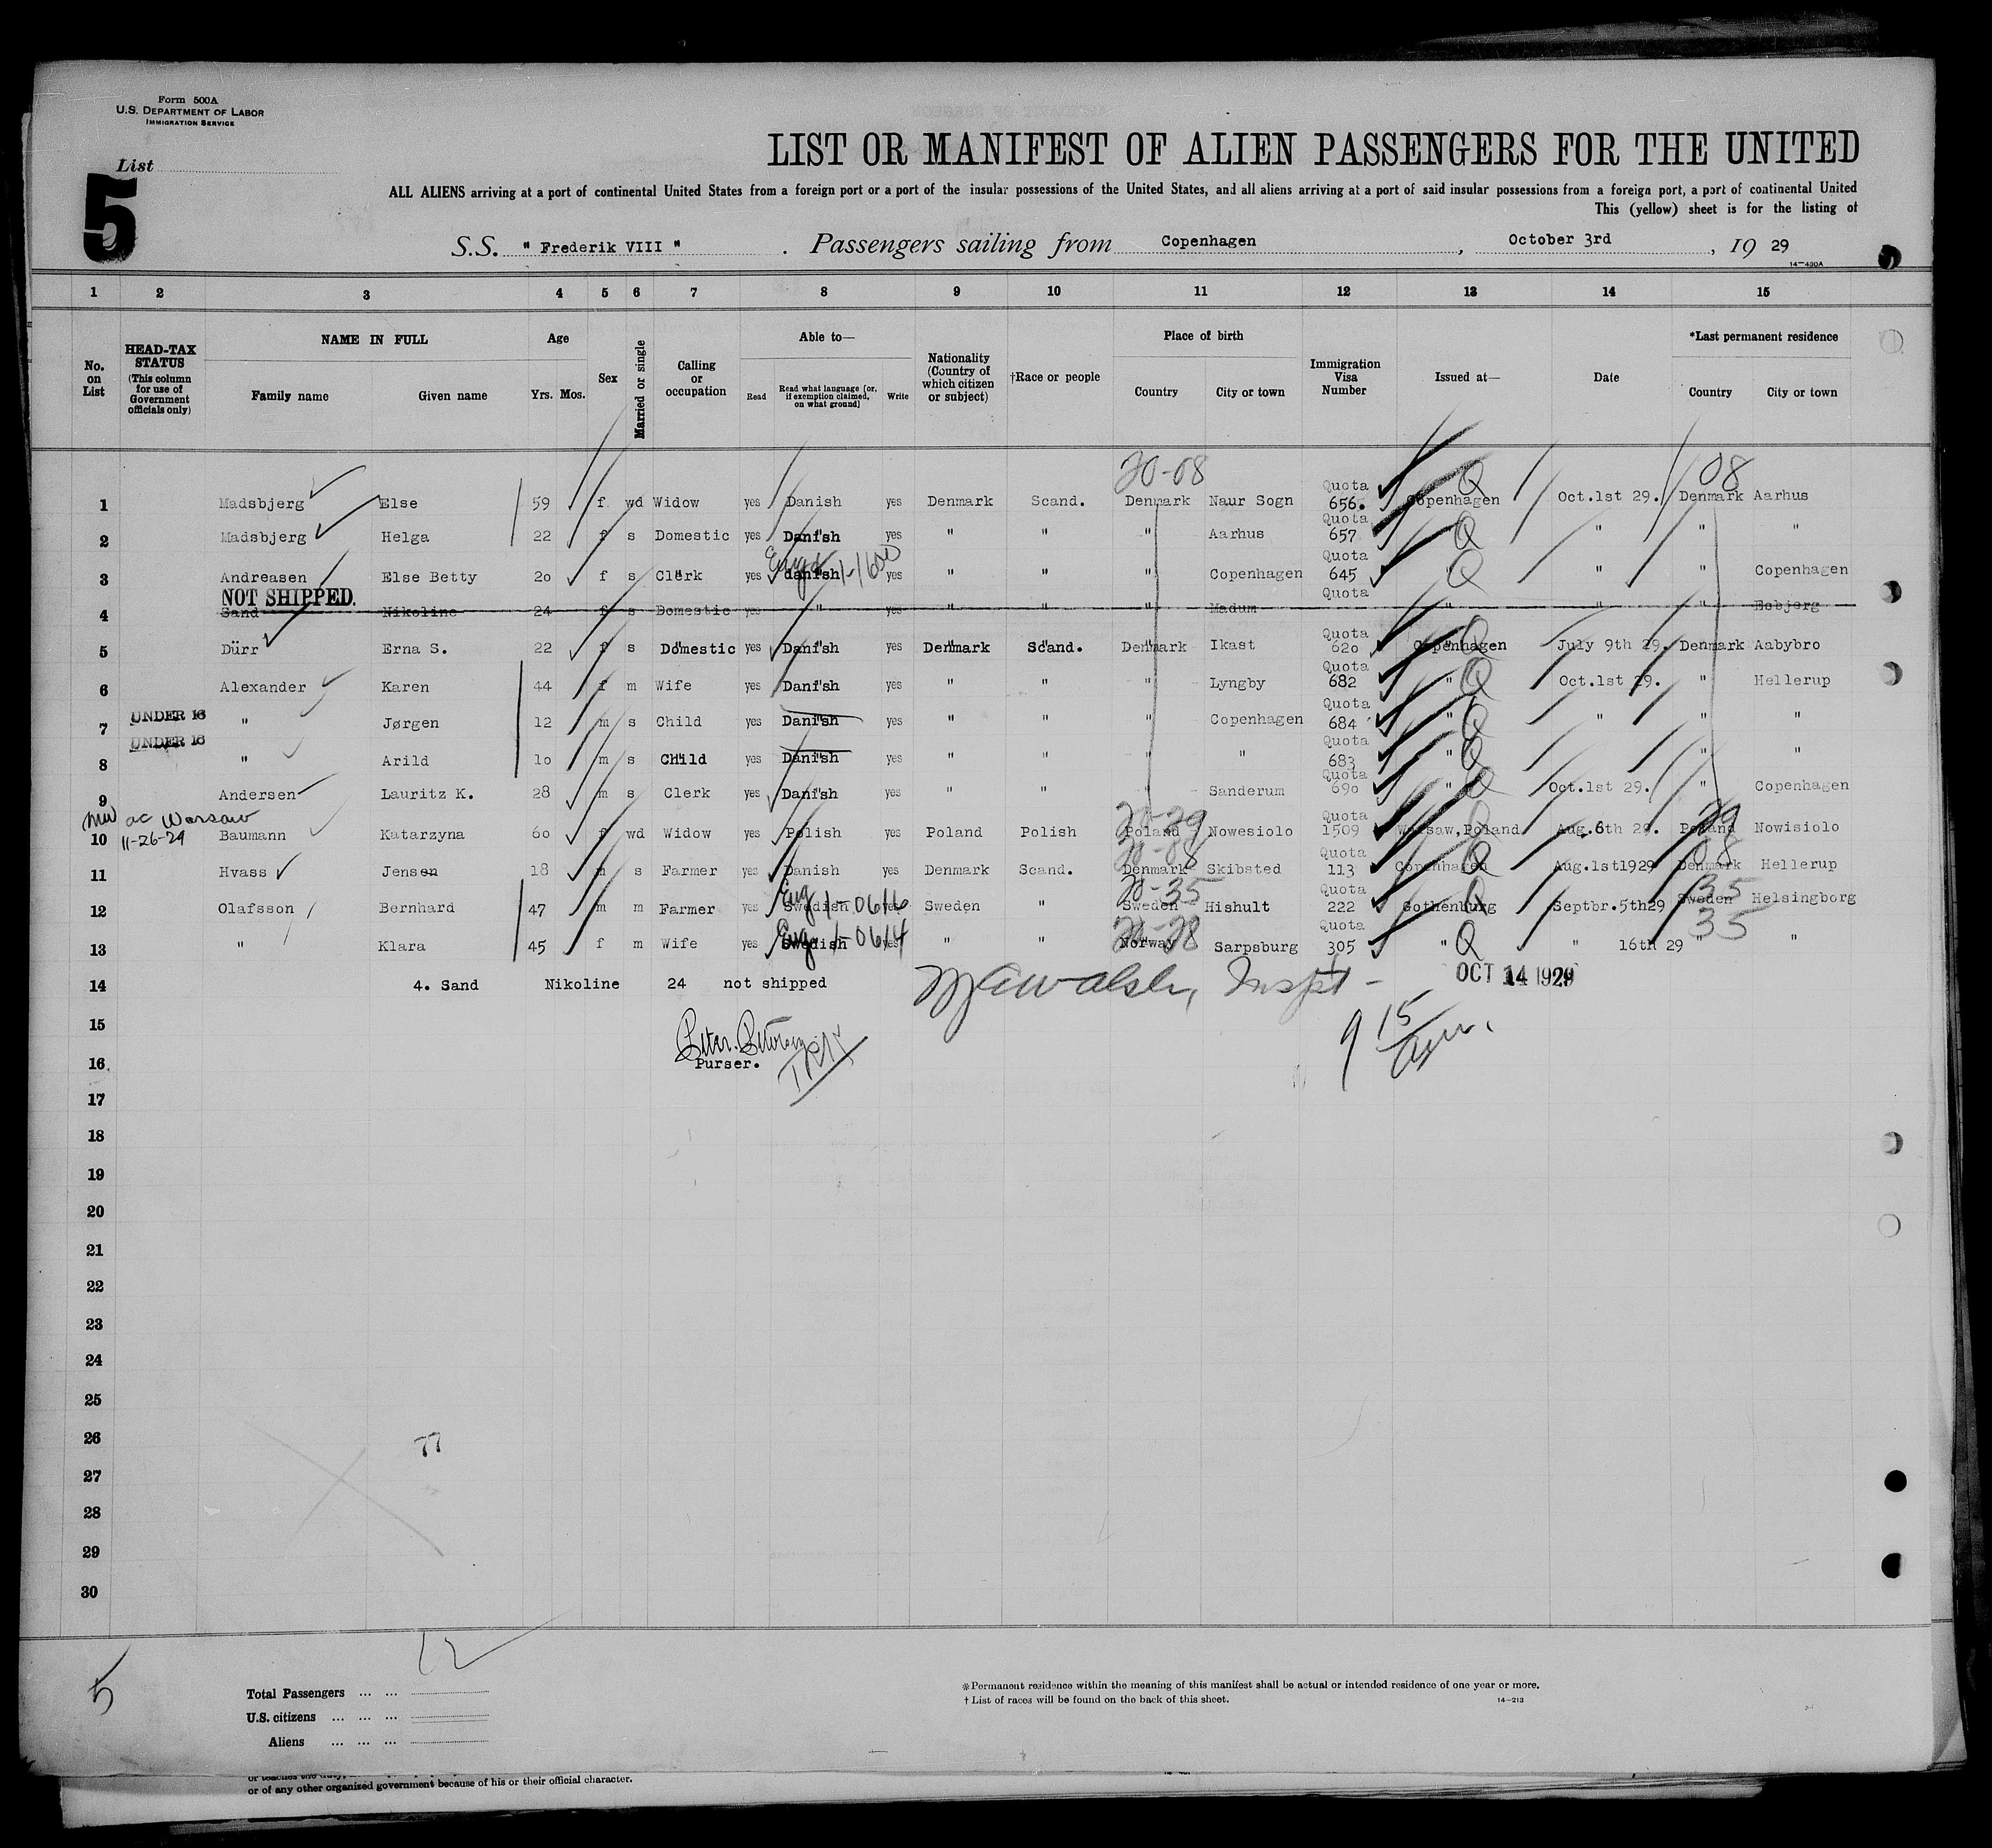 Form 500A
U.S. DEPARTMENT OF LABOR
IMMIGRATION SERVICE
List
5
LIST OR MANIFEST OF ALIEN PASSENGERS FOR THE UNITED
ALL ALIENS arriving at a port of continental United States from a foreign port or a port of the insular possessions of the United States, and all aliens arriving at a port of said insular possessions from a foreign port, a port of continental United
This (yellow) sheet is for the listing of
S.S. " Frederik VIII " . Passengers sailing from Copenhagen , October 3rd , 19 29
14-430A
1 2 3 4 5 6 7 8 9 10 11 12 13 14 15
No. on List
HEAD-TAX STATUS (This column for use of Government officials only)
NAME IN FULL
Family name Given name
Age
Yrs. Mos.
Sex
Married or single
Calling or occupation
Able to—
Read Read what language [or, if exemption claimed, on what ground] Write
Nationality (Country of which citizen or subject)
†Race or people
Place of birth
Country City or town
Immigration Visa Number
Issued at—
Date
*Last permanent residence
Country City or town
20-08 08
1 Madsbjerg Else 59 f wd Widow yes Danish yes Denmark Scand. Denmark Naur Sogn Quota 656. Copenhagen Q Oct.1st 29. Denmark Aarhus
2 Madsbjerg Helga 22 f s Domestic yes Danish yes " " " Aarhus Quota 657 Q " " "
3 Andreasen Else Betty 20 f s Clerk yes danish 1-1600 yes " " " Copenhagen Quota 645 " Q " " Copenhagen
NOT SHIPPED.
4 Sand Nikoline 24 f s Domestic yes " yes " " " Madum Quota " " " Esbjerg
5 Dürr Erna S. 22 f s Domestic yes Danish yes Denmark Scand. Denmark Ikast Quota 620 Copenhagen Q July 9th 29. Denmark Aabybro
6 Alexander Karen 44 f m Wife yes Danish yes " " " Lyngby Quota 682 " Q Oct.1st 29. " Hellerup
UNDER 16
7 " Jørgen 12 m s Child yes Danish yes " " " Copenhagen Quota 684 " Q " " "
UNDER 16
8 " Arild 10 m s Child yes Danish yes " " " " Quota 683 " Q " "
9 Andersen Lauritz K. 28 m s Clerk yes Danish yes " " " Sanderum Quota 690 " Q Oct.1st 29. " Copenhagen
ac Warsaw
11-26-29
20-29 29
10 Baumann Katarzyna 60 f wd Widow yes Polish yes Poland Polish Poland Nowesiolo Quota 1509 Warsaw,Poland Aug.6th 29. Poland Nowisiolo
08
11 Hvass Jensen 18 m s Farmer yes Danish yes Denmark Scand. Denmark Skibsted Quota 113 Copenhagen Q Aug.1st1929 Denmark Hellerup
20-35 35
12 Olafsson Bernhard 47 m m Farmer yes Eng Swedish 1-0616 yes Sweden " Sweden Hishult Quota 222 Gothenburg Q Septbr.5th29 Sweden Helsingborg
20-28 35
13 " Klara 45 f m Wife yes Eng Swedish 1-0614 yes " " Norway Sarpsburg Quota 305 " Q " 16th 29 " "
14 4. Sand Nikoline 24 not shipped Inspt - OCT 14 1929
15 9 15
Purser.
16
17
18
19
20
21
22
23
24
25
26
77
27
28
29
30
12
5
Total Passengers ... ...
U.S. citizens ... ... ...
Aliens ... ... ...
*Permanent residence within the meaning of this manifest shall be actual or intended residence of one year or more.
†List of races will be found on the back of this sheet. 14-213
or of any other organized government because of his or their official character.